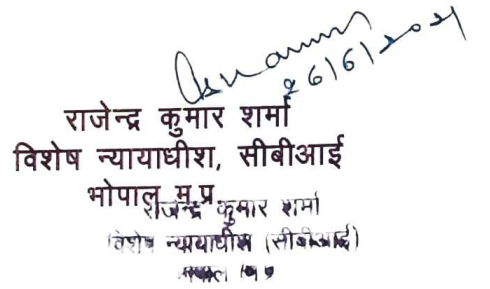 26/6/2021
राजेन्द्र कुमार शर्मा
विशेष न्यायाधीश, सीबीआई
भोपाल म.प्र.
राजेन्द्र कुमार शर्मा
विशेष न्यायाधीश (सीबीआई)
भोपाल म प्र